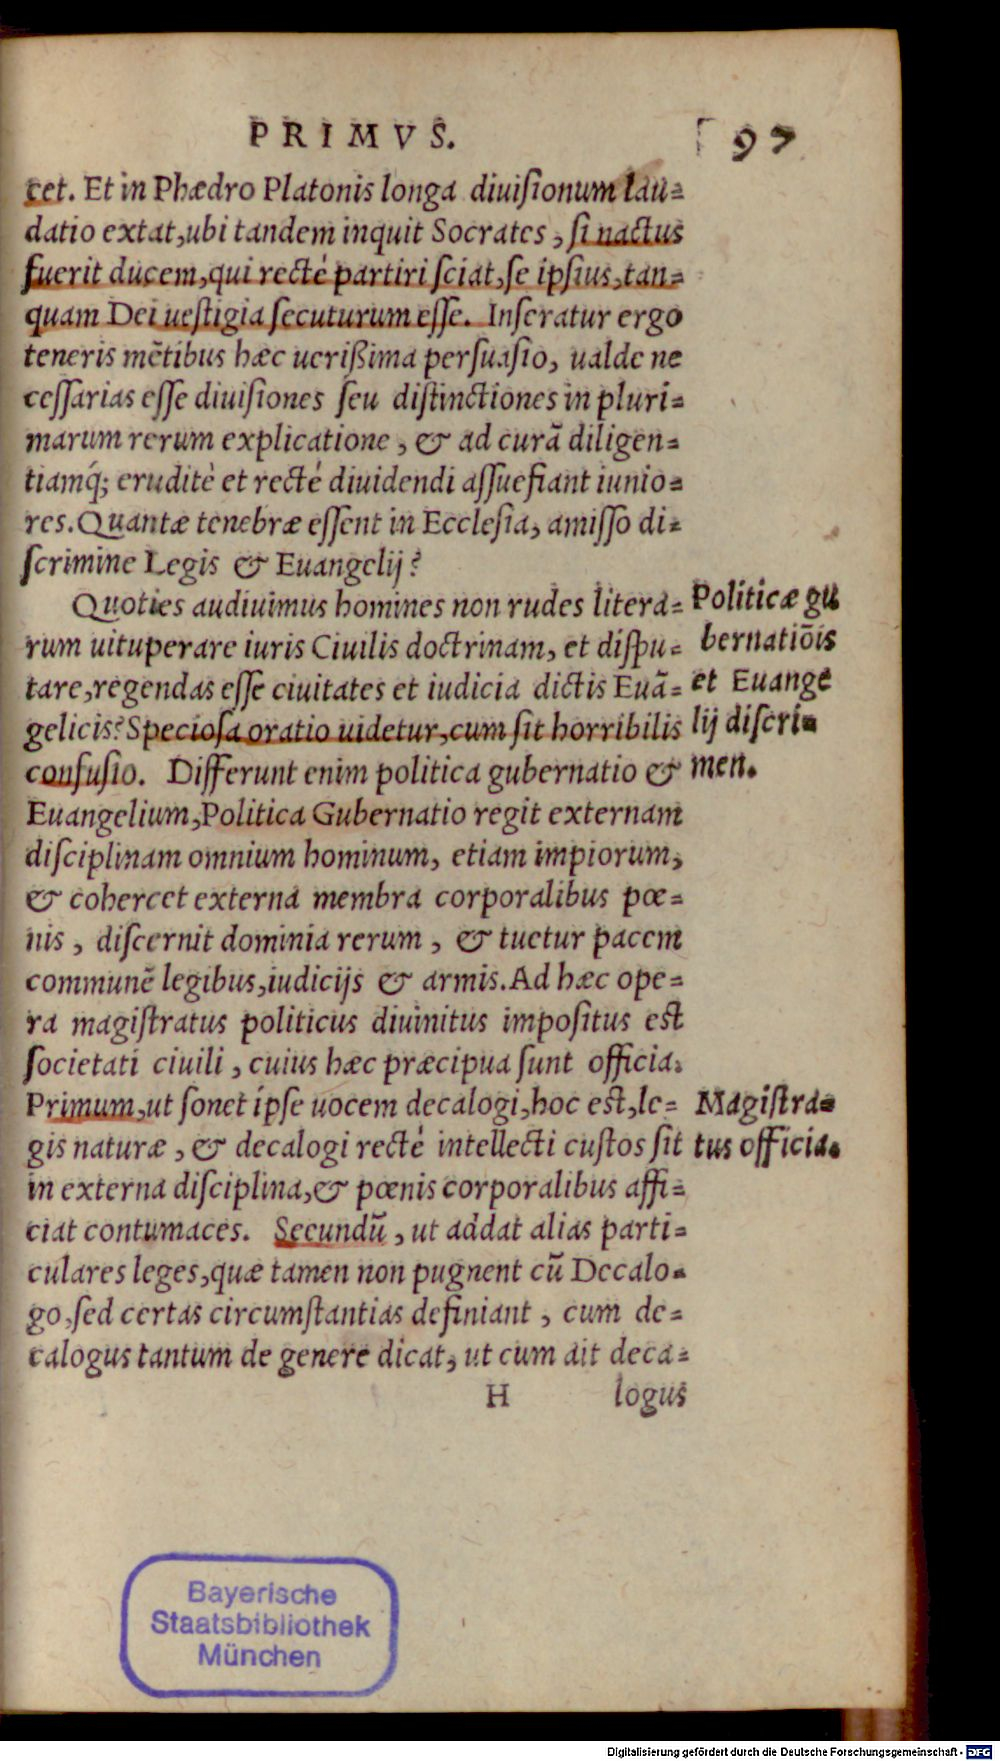 PRIMVS. 97
cet. Et in Phædro Platonis longa diuiſionum lau-
datio extat, ubi tandem inquit Socrates, ſi nactus
fuerit ducem, qui recté partiri ſciat, ſe ipſius, tan-
quam Dei ueſtigia ſecuturum eſſe. Inſeratur ergo
teneris mẽtibus hæc ueriſſima perſuaſio, ualde ne
ceſſarias eſſe diuiſiones ſeu diſtinctiones in pluri-
marum rerum explicatione, & ad curã diligen-
tiamq́; eruditè et recté diuidendi aſſuefiant iunio-
res. Quantæ tenebræ eſſent in Eccleſia, amiſſo di-
ſcrimine Legis & Euangelij?
Quoties audiuimus homines non rudes litera-
rum uituperare iuris Ciuilis doctrinam, et diſpu-
tare, regendas eſſe ciuitates et iudicia dictis Euã-
gelicis? Specioſa oratio uidetur, cum ſit horribilis
confuſio. Differunt enim politica gubernatio &
Euangelium, Politica Gubernatio regit externam
diſciplinam omnium hominum, etiam impiorum,
& cohercet externa membra corporalibus pœ-
nis, diſcernit dominia rerum, & tuetur pacem
communẽ legibus, iudicijs & armis. Ad hæc ope-
ra magiſtratus politicus diuinitus impoſitus eſt
ſocietati ciuili, cuius hæc præcipua ſunt officia.
Primum, ut ſonet ipſe uocem decalogi, hoc eſt, le-
gis naturæ, & decalogi recté intellecti cuſtos ſit
in externa diſciplina, & pœnis corporalibus affi-
ciat contumaces. Secundũ, ut addat alias parti-
culares leges, quæ tamen non pugnent cũ Decalo-
go, ſed certas circumſtantias definiant, cum de-
calogus tantum de genere dicat, ut cum ait deca-
H logus
Politicæ gu
bernatiõis
et Euange
lij diſcri-
men.
Magiſtra-
tus officia.
Bayerische
Staatsbibliothek
München
Digitalisierung gefördert durch die Deutsche Forschungsgemeinschaft - DFG